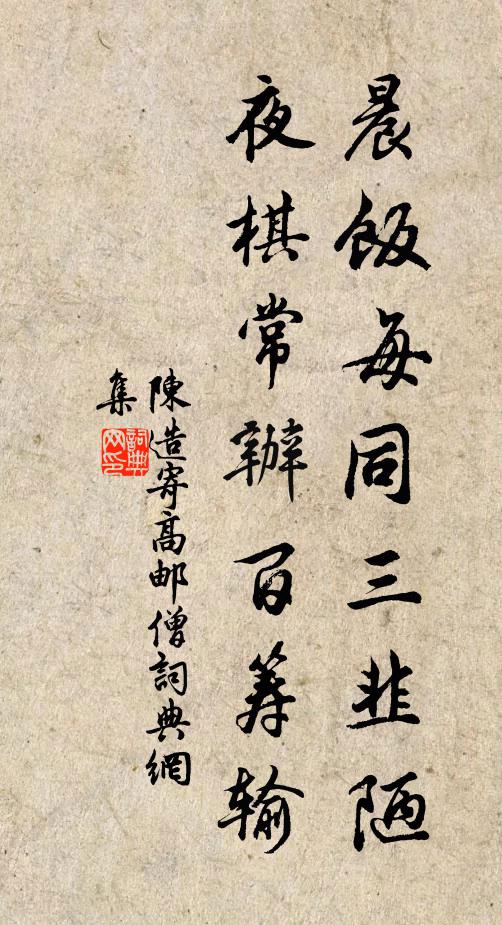 晨飯每同三韭陋
夜棋常辦百籌輸
陳造寄高邮僧詞典網
集
詞典網印